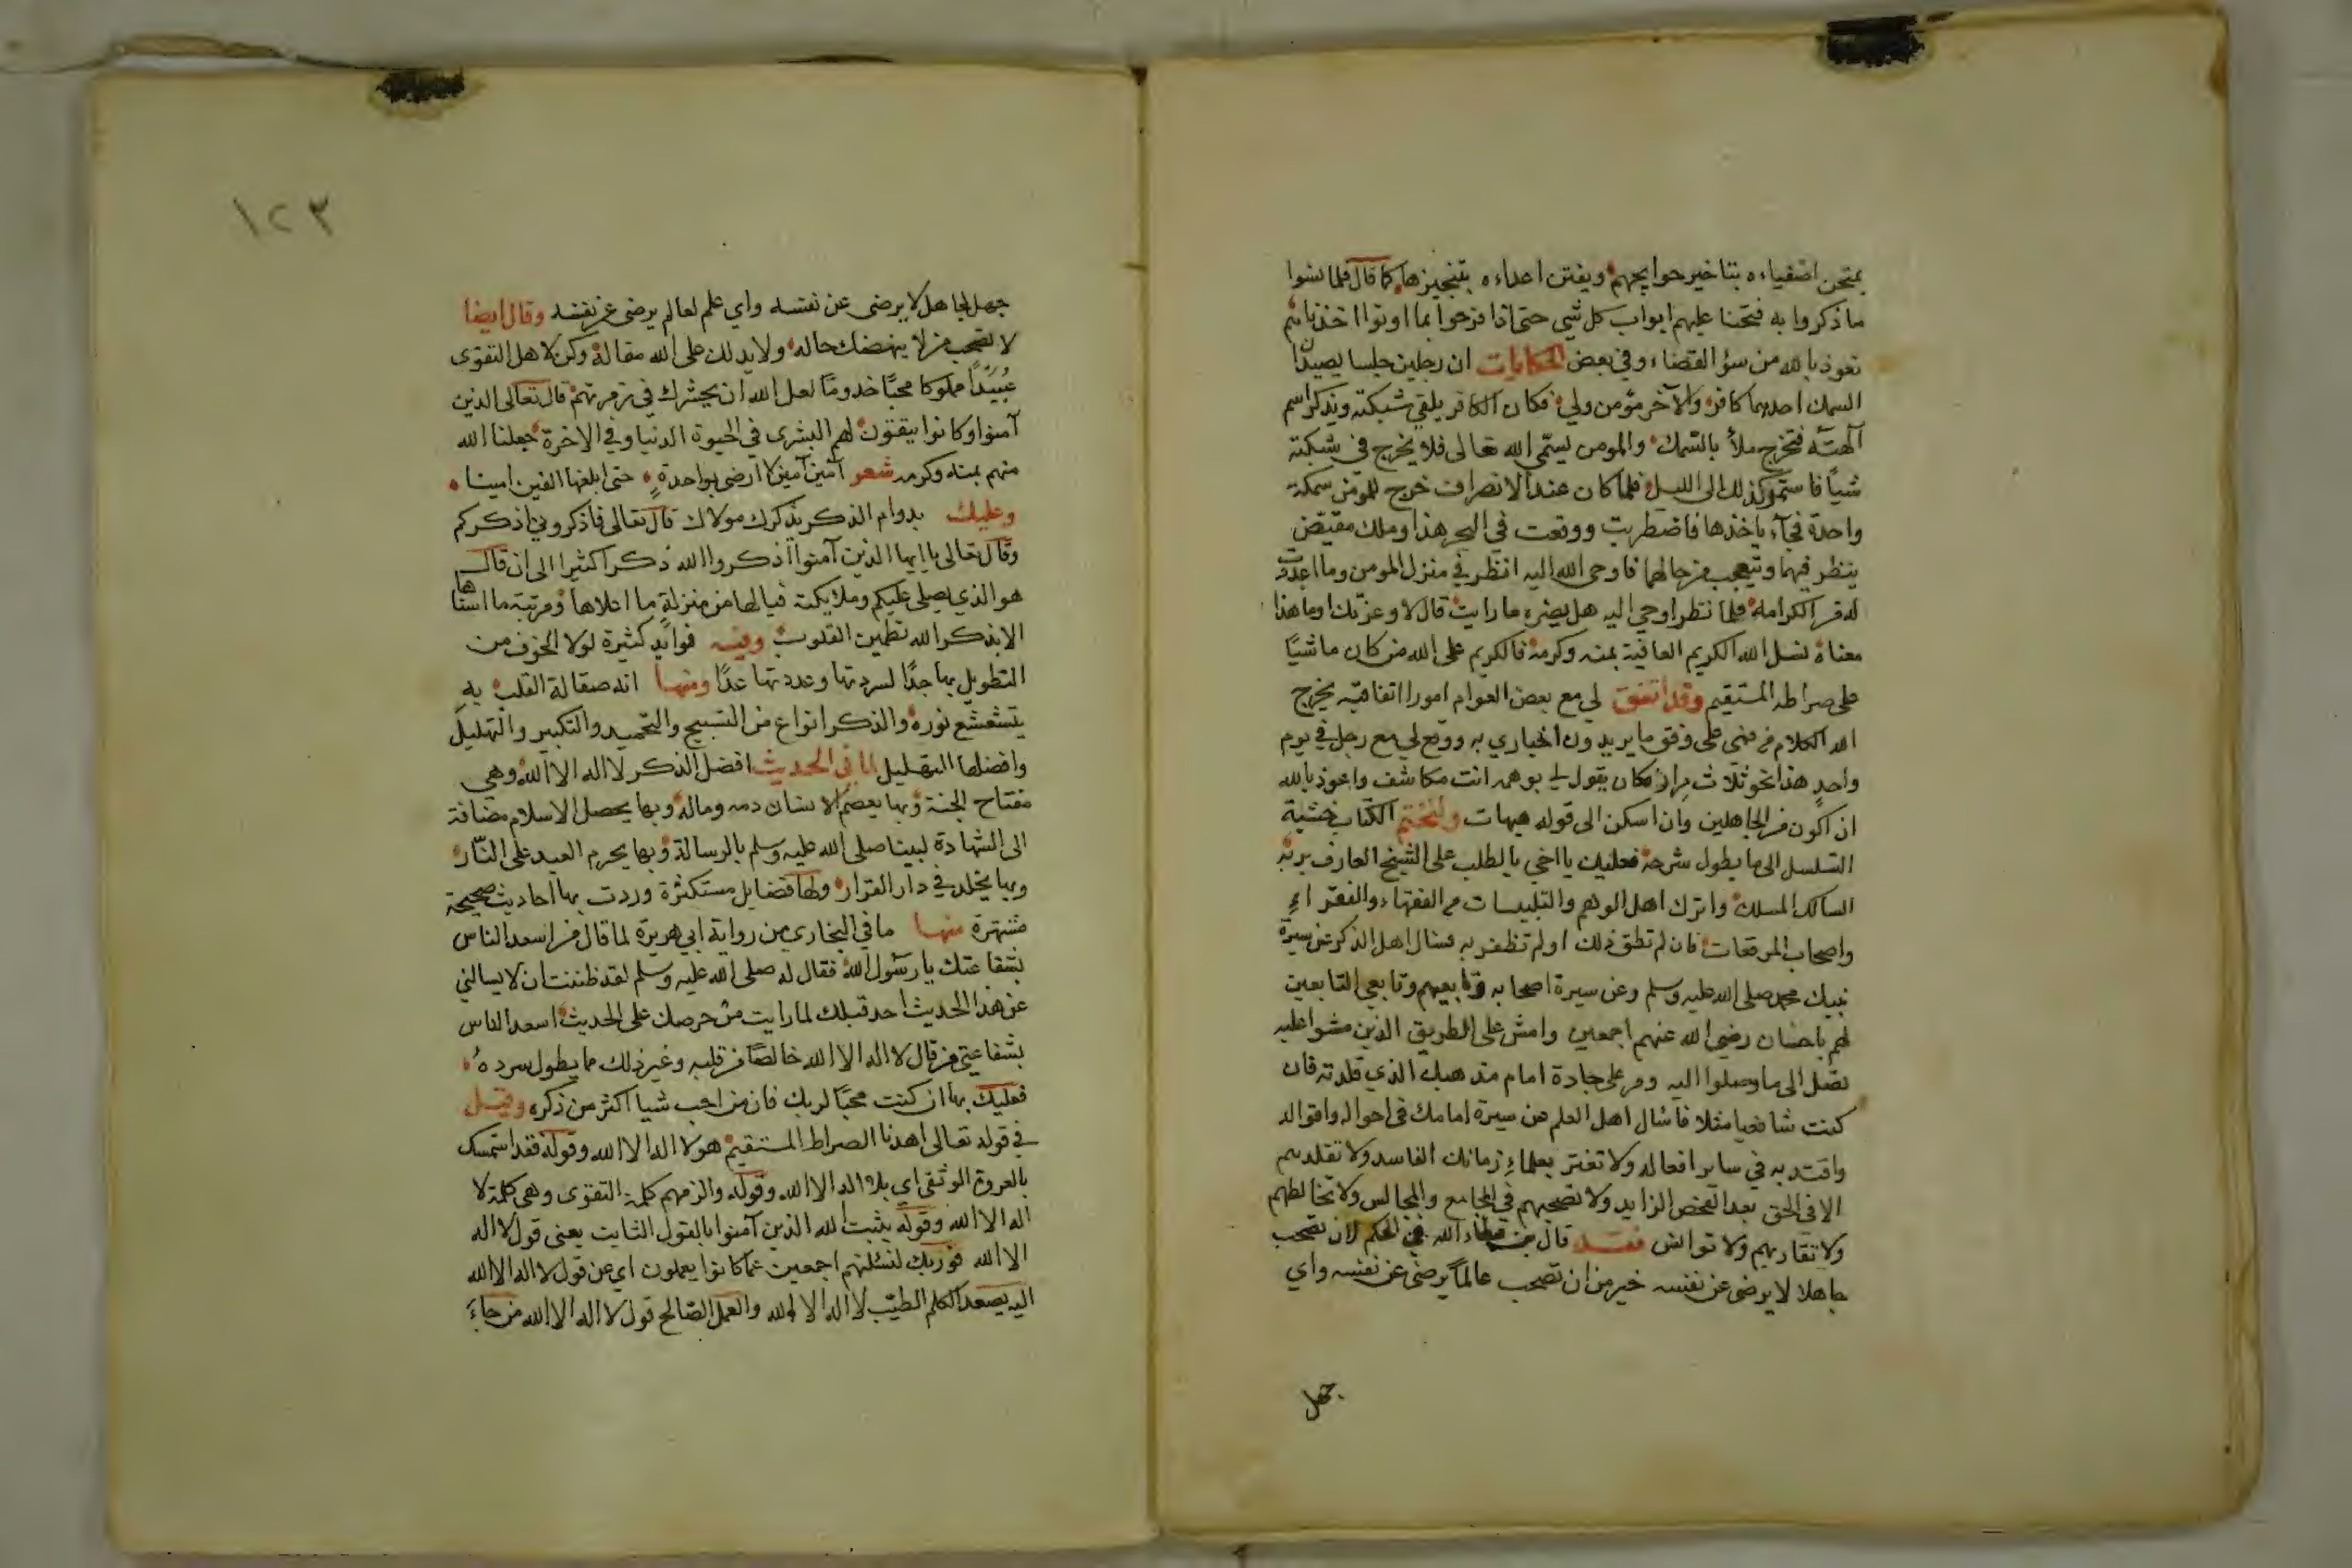 يمتحن اصفياءه بتاخير حوايجهم ويفتن اعداءه بتنجيزها كما قال فلما نسوا
ما ذكروا به فتحنا عليهم ابواب كل شي حتى اذا فرحوا بما اوتوا اخذناهم
نعوذ بالله من سؤ القضاء وفي بعض الحكايات ان رجلين جلسا يصيدان
السمك احدهما كافر والآخر مؤمن ولي فكان الكافر يلقي شبكته ويذكر اسم
آلهته فتخرج ملأ بالسمك والمومن يسمي الله تعالى فلا يخرج في شبكته
شيأ فاستمر كذلك الى الليل فلما كان عند الانصراف خرج للمومن سمكة
واحدة فجآء ياخذها فاضطربت ووقعت في البحر هذا وملك مقيض
ينظر فيهما ويتعجب من حالهما فاوحى الله اليه انظر في منزل المومن وما اعددت
له من الكرامة فلما نظر اوحي اليه هل يضره ما رايت قال لا وعزتك او ما هذا
معناه نسل الله الكريم العافية بمنه وكرمه فالكريم على الله من كان ماشيا
على صراطه المستقيم وقد اتفق لي مع بعض العوام امورا اتفاقية يخرج
الله الكلام من فمي على وفق ما يريدون اخباري به ووقع لي مع رجل في يوم
واحد هذا نحو ثلاث مرار فكان يقول لي بوهمه انت مكاشف واعوذ بالله
ان اكون من الجاهلين وان اسكن الى قوله هيهات ولنختم الكتاب خشية
التسلسل الى ما يطول شرحه فعليك يا اخي بالطلب على الشيخ العارف بربه
السالك المسلك واترك اهل الوهم والتلبيسات من الفقهاء والفقراء
واصحاب المرقعات فان لم تطق ذلك او لم تظفر به فسال اهل الذكر عن سيرة
نبيك محمد صلى الله عليه وسلم وعن سيرة اصحابه وتابعيهم وتابعي التابعين
لهم باحسان رضي الله عنهم اجمعين وامش على الطريق الذين مشوا عليه
تصل الى ما وصلوا اليه ومر على جادة امام مذهبك الذي قلدته فان
كنت شافعيا مثلا فاسال اهل العلم عن سيرة امامك في احواله واقواله
واقتد به في ساير افعاله ولا تغتر بعلماء زمانك الفاسد ولا تقلدهم
الا في الحق بعد الفحص الزايد ولا تصحبهم في المجامع والمجالس ولا تخالطهم
ولا تقاربهم ولا توانس فقد قال بن عطاء الله في الحكم لان تصحب
جاهلا لا يرضى عن نفسه خير من ان تصحب عالما يرضى عن نفسه واي
جهل
١٢٣
جهل لجاهل لا يرضى عن نفسه واي علم لعالم يرضى عن نفسه وقال ايضا
لا تصحب من لا ينهضك حاله ولا يدلك على الله مقاله وكن لاهل التقوى
عبيدا مملوكا محبا خدوما لعل الله ان يحشرك في زمرتهم قال تعالى الذين
آمنوا وكانوا يتقون لهم البشرى في الحيوة الدنيا وفي الاخرة جعلنا الله
منهم بمنه وكرمه شعر آمين آمين لا ارضى بواحدة حتى ابلغها الفين امينا
وعليك بدوام الذكر يذكرك مولاك قال تعالى فاذكروني اذكركم
وقال تعالى يا ايها الذين آمنوا اذكروا الله ذكرا كثيرا الى ان قال
هو الذي يصلي عليكم وملايكته فيالها من منزلة ما اعلاها ومرتبة ما اسناها
الا بذكر الله تطمين القلوب وفيه فوايد كثيرة لولا الخوف من
التطويل بها جدا لسردتها وعددتها عدا ومنها انه صقالة القلب به
يتشعشع نوره والذكر انواع من التسبيح والتحميد والتكبير والتهليل
وافضلها التهليل لما في الحديث افضل الذكر لا اله الا الله وهي
مفتاح الجنة وبها يعصم الانسان دمه وماله وبها يحصل الاسلام مضافة
الى الشهادة لنبينا صلى الله عليه وسلم بالرسالة وبها يحرم العبد على النار
وبها يخلد في دار القرار ولها فضايل مستكثرة وردت بها احاديث صحيحة
مشتهرة منها ما في البخاري من رواية ابي هريرة لما قال من اسعد الناس
بشفاعتك يا رسول الله فقال له صلى الله عليه وسلم لقد ظننت ان لا يسالني
عن هذا الحديث احد قبلك لما رايت من حرصك على الحديث اسعد الناس
بشفاعتي من قال لا اله الا الله خالصا من قلبه وغير ذلك مما يطول سرده
فعليك بها ان كنت محبا لربك فان من احب شيا اكثر من ذكره وقيل
في قوله تعالى اهدنا الصراط المستقيم هو لا اله الا الله وقوله فقد استمسك
بالعروة الوثقى اي بلا اله الا الله وقوله والزمهم كلمة التقوى وهي كلمة لا
اله الا الله وقوله يثبت الله الذين آمنوا بالقول الثابت يعني قول لا اله
الا الله فوربك لنسئلنهم اجمعين عما كانوا يعملون اي عن قول لا اله الا الله
اليه يصعد الكلم الطيب لا اله الا الله والعمل الصالح قول لا اله الا الله من جاء